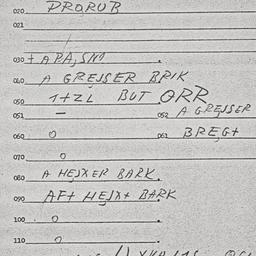 020 PRORUB
021
030 + APA,SNO.
040 A GREJSER BRIK
050 1+ZL BUT ØRR
051 — 052 A GREJSER
060 0 061 BREG+
070 0
080 A HEJXER BARK.
090 AF+ HEJX+ BARK
100 0.
110 0.